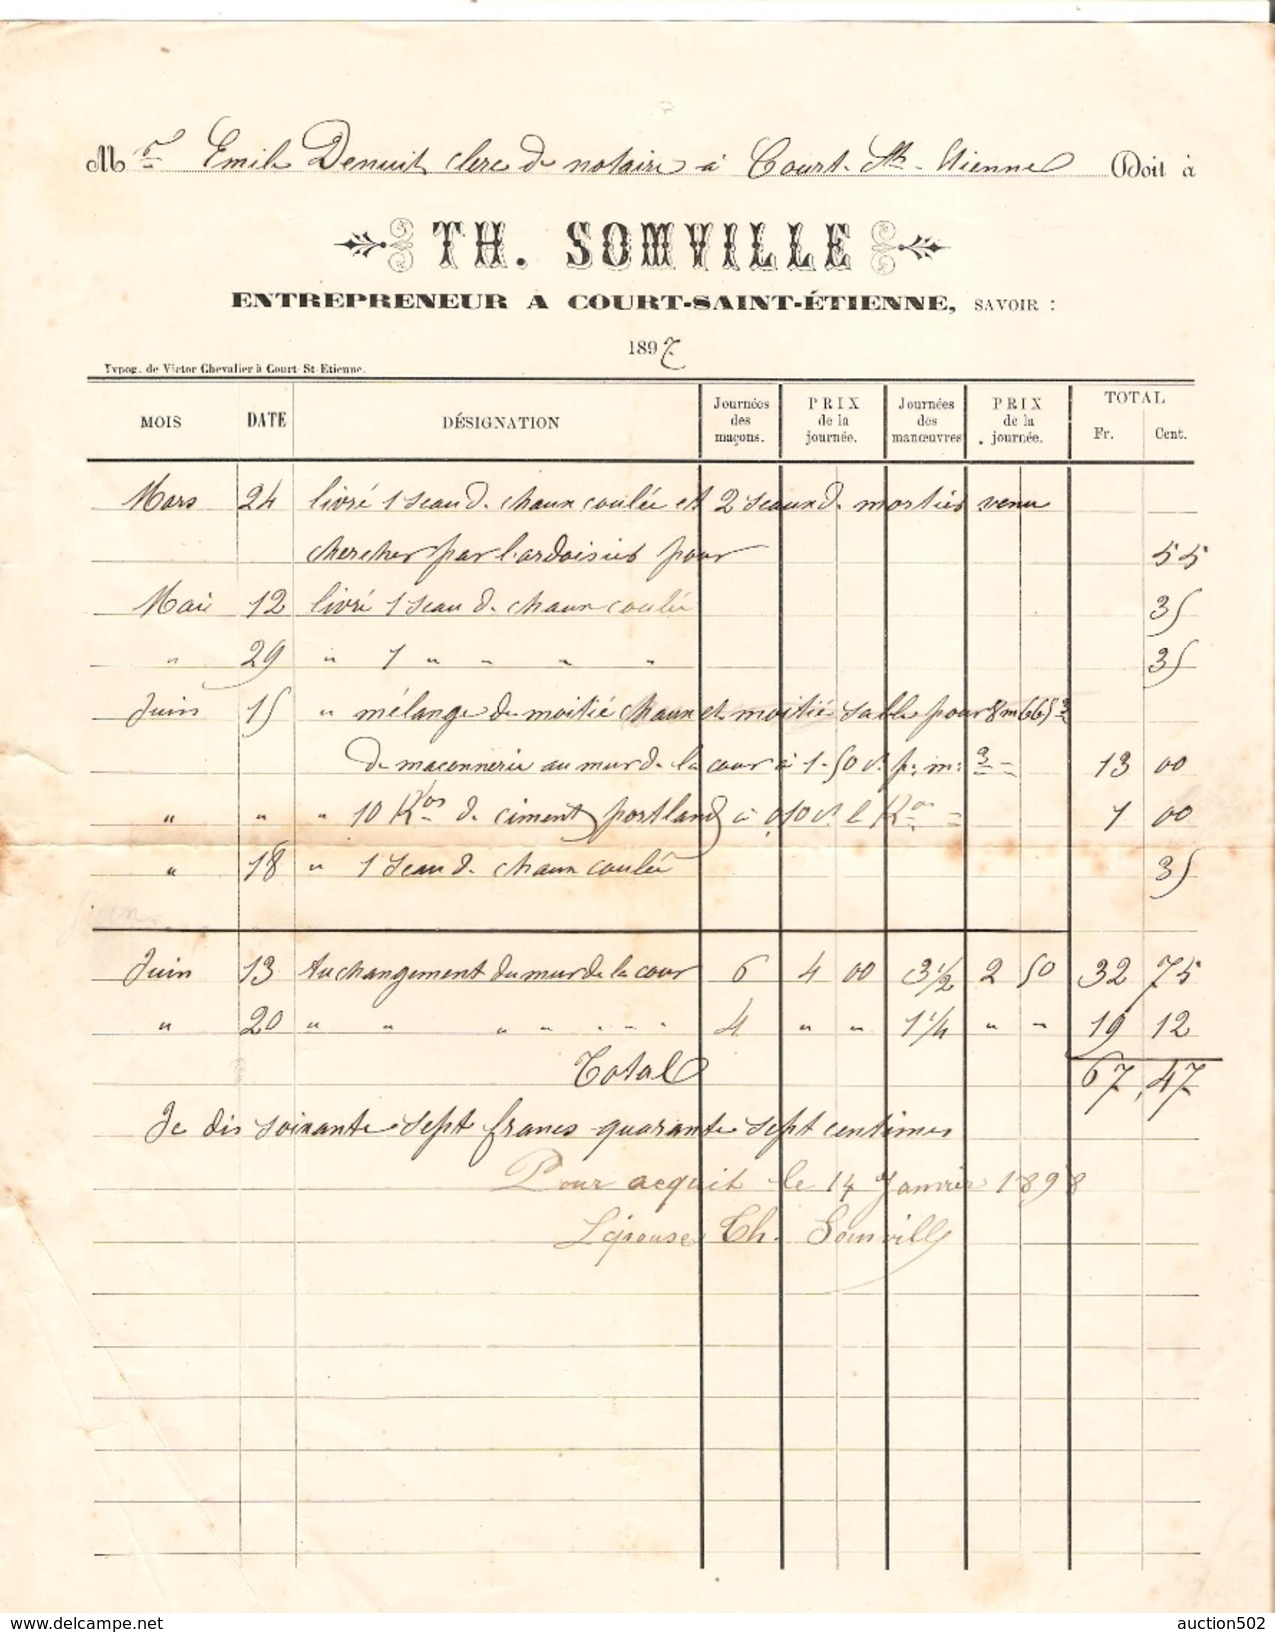 Mr Emile Denuit clerc de notaire à Court-St-Etienne Doit à
TH. SOMVILLE
ENTREPRENEUR A COURT-SAINT-ÉTIENNE, SAVOIR :
1897
Typog. de Victor Chevalier à Court-St-Etienne.
MOIS DATE DÉSIGNATION Journées des maçons. PRIX de la journée. Journées des manœuvres PRIX de la journée. TOTAL Fr. Cent.
Mars 24 livré 1 seau de chaux coulée et 2 seaux de mortier venu
chercher par l'ardoisier pour 55
Mai 12 livré 1 seau de chaux coulée 35
" 29 " 1 " " " " 35
Juin 15 " mélange de moitié chaux et moitié sable pour 8m665 3
de maçonnerie au mur de la cour à 1-50 p. m. 3 = 13 00
" " " 10 Kos de ciment portland à 0,10 le Kos = 1 00
" 18 " 1 seau de chaux coulée 35
Juin 13 Au changement du mur de la cour 6 4 00 3 1/2 2 50 32 75
" 20 " " " " " " " 4 " " 1 1/4 " " 19 12
Total 67,47
Je dis soixante sept francs quarante sept centimes
Pour acquit le 14 Janvier 1898
L'épouse Th. Somville
www.delcampe.net
auction502